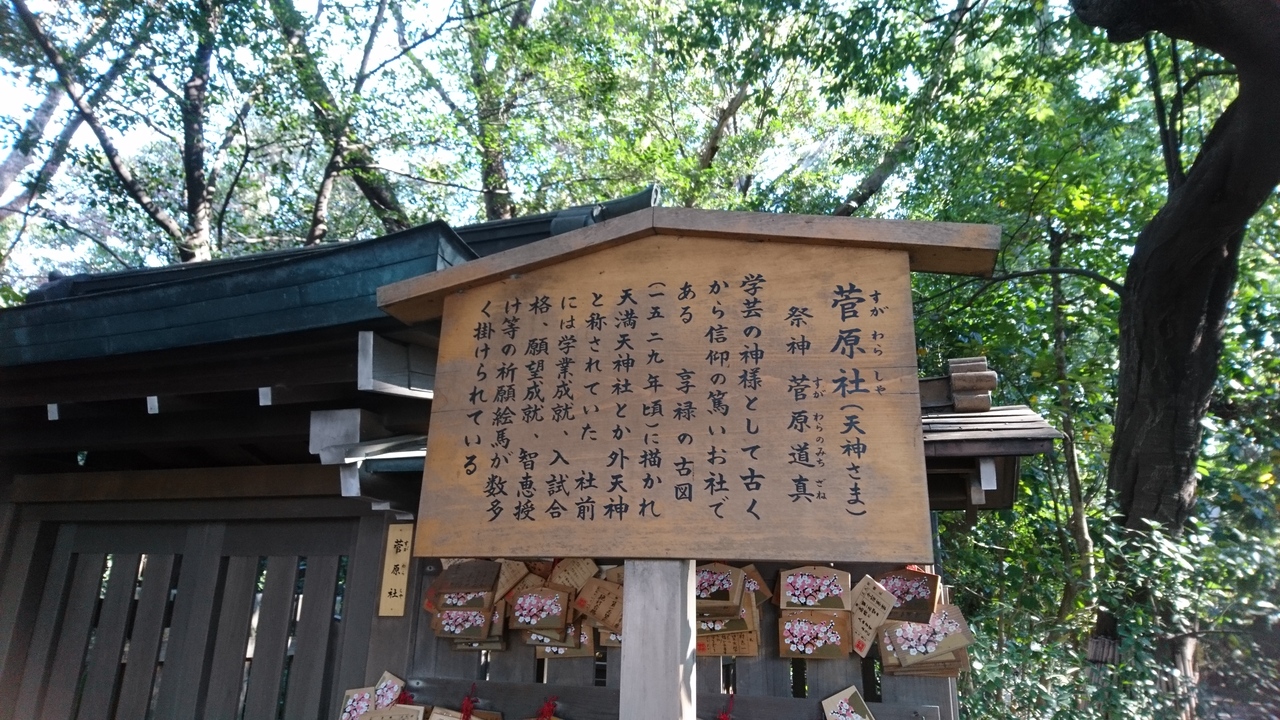 菅原社(天神さま)
すがわらしゃ
祭神 菅原道真
すがわらのみちざね
学芸の神様として古く
から信仰の篤いお社で
ある 享禄の古図
(一五二九年頃)に描かれ
天満天神社とか外天神
と称されていた 社前
には学業成就、入試合
格、願望成就、智恵授
け等の祈願絵馬が数多
く掛けられている
菅原社